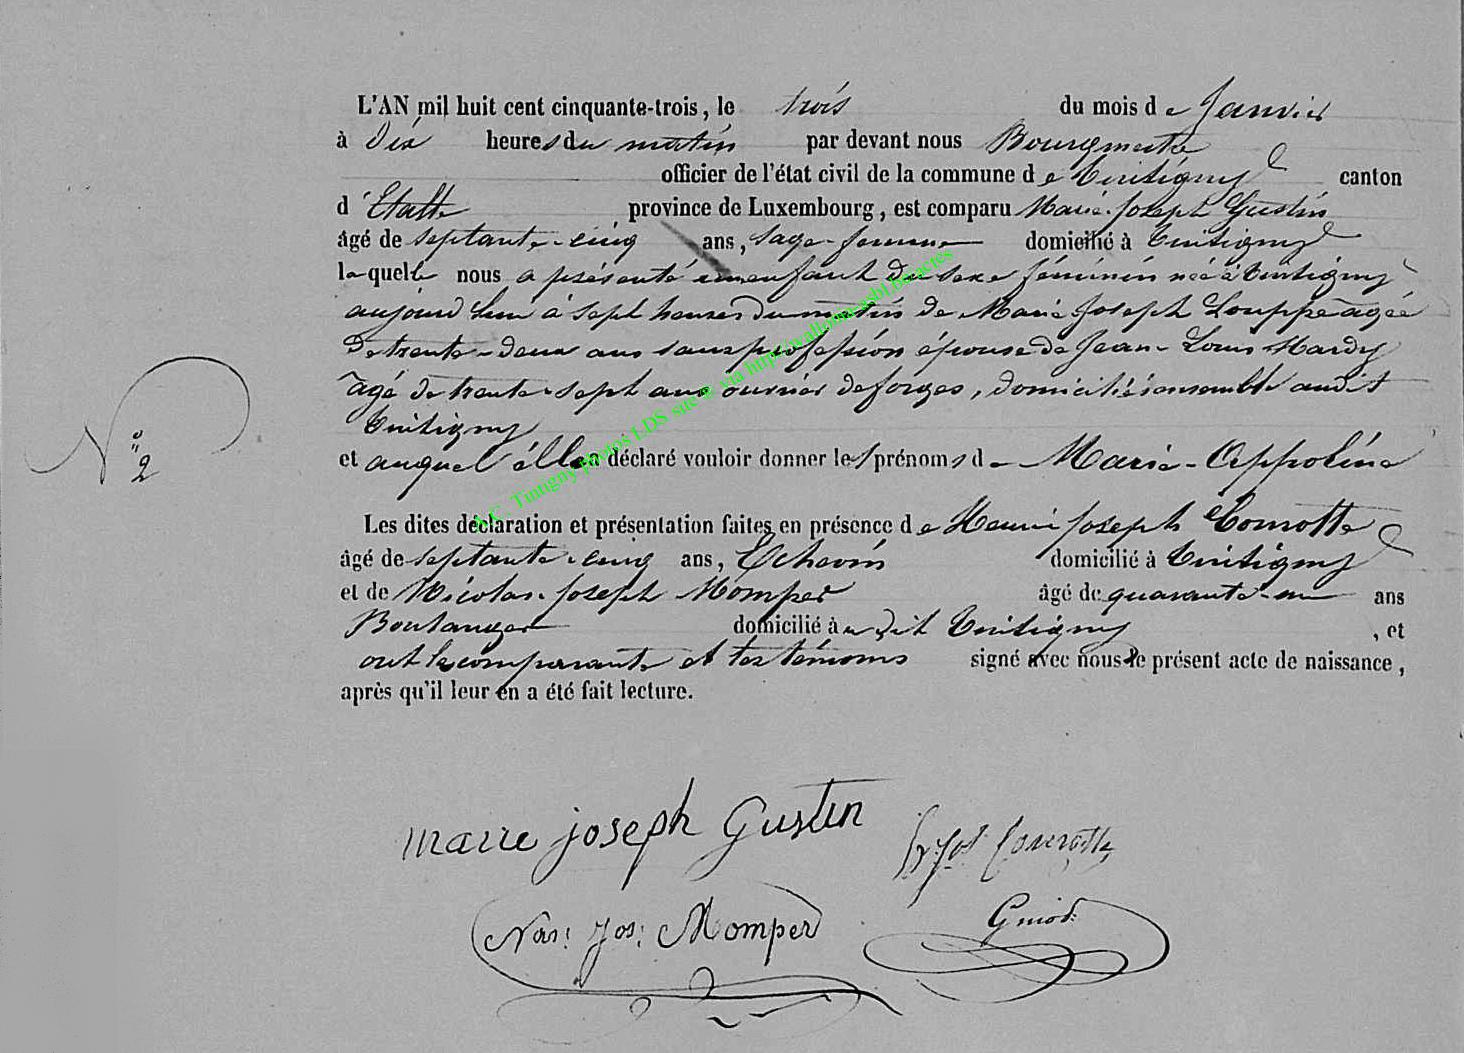 L'AN mil huit cent cinquante-trois, le trois du mois de Janvier
à Dix heures du matin par devant nous Bourgmestre
officier de l'état civil de la commune de Tintigny canton
d'Etalle province de Luxembourg, est comparu Marie-Joseph Gustin
âgé de septante-cinq ans, sage-femme domicilié à Tintigny
laquelle nous a présenté un enfant du sexe féminin née à Tintigny
aujourd'hui à sept heures du matin de Marie-Joseph Louppe âgée
de trente-deux ans sans profession épouse de Jean-Louis Hardy
âgé de trente-sept ans ouvrier de forges, domiciliés ensemble audit
Tintigny
N° 2
et auquel elle a déclaré vouloir donner les prénoms de Marie-Appoline
Les dites déclaration et présentation faites en présence de Henri Joseph
âgé de septante-cinq ans, Echevin domicilié à Tintigny
et de Nicolas-Joseph Momper âgé de quarante-un ans
Boulanger domicilié audit Tintigny, et
ont la comparante et les témoins signé avec nous le présent acte de naissance,
après qu'il leur en a été fait lecture.
marie joseph Gustin
Nas: Jos: Momper
A.C. Tintigny photos LDS suc © via http://wallonia-asbl.be/actes